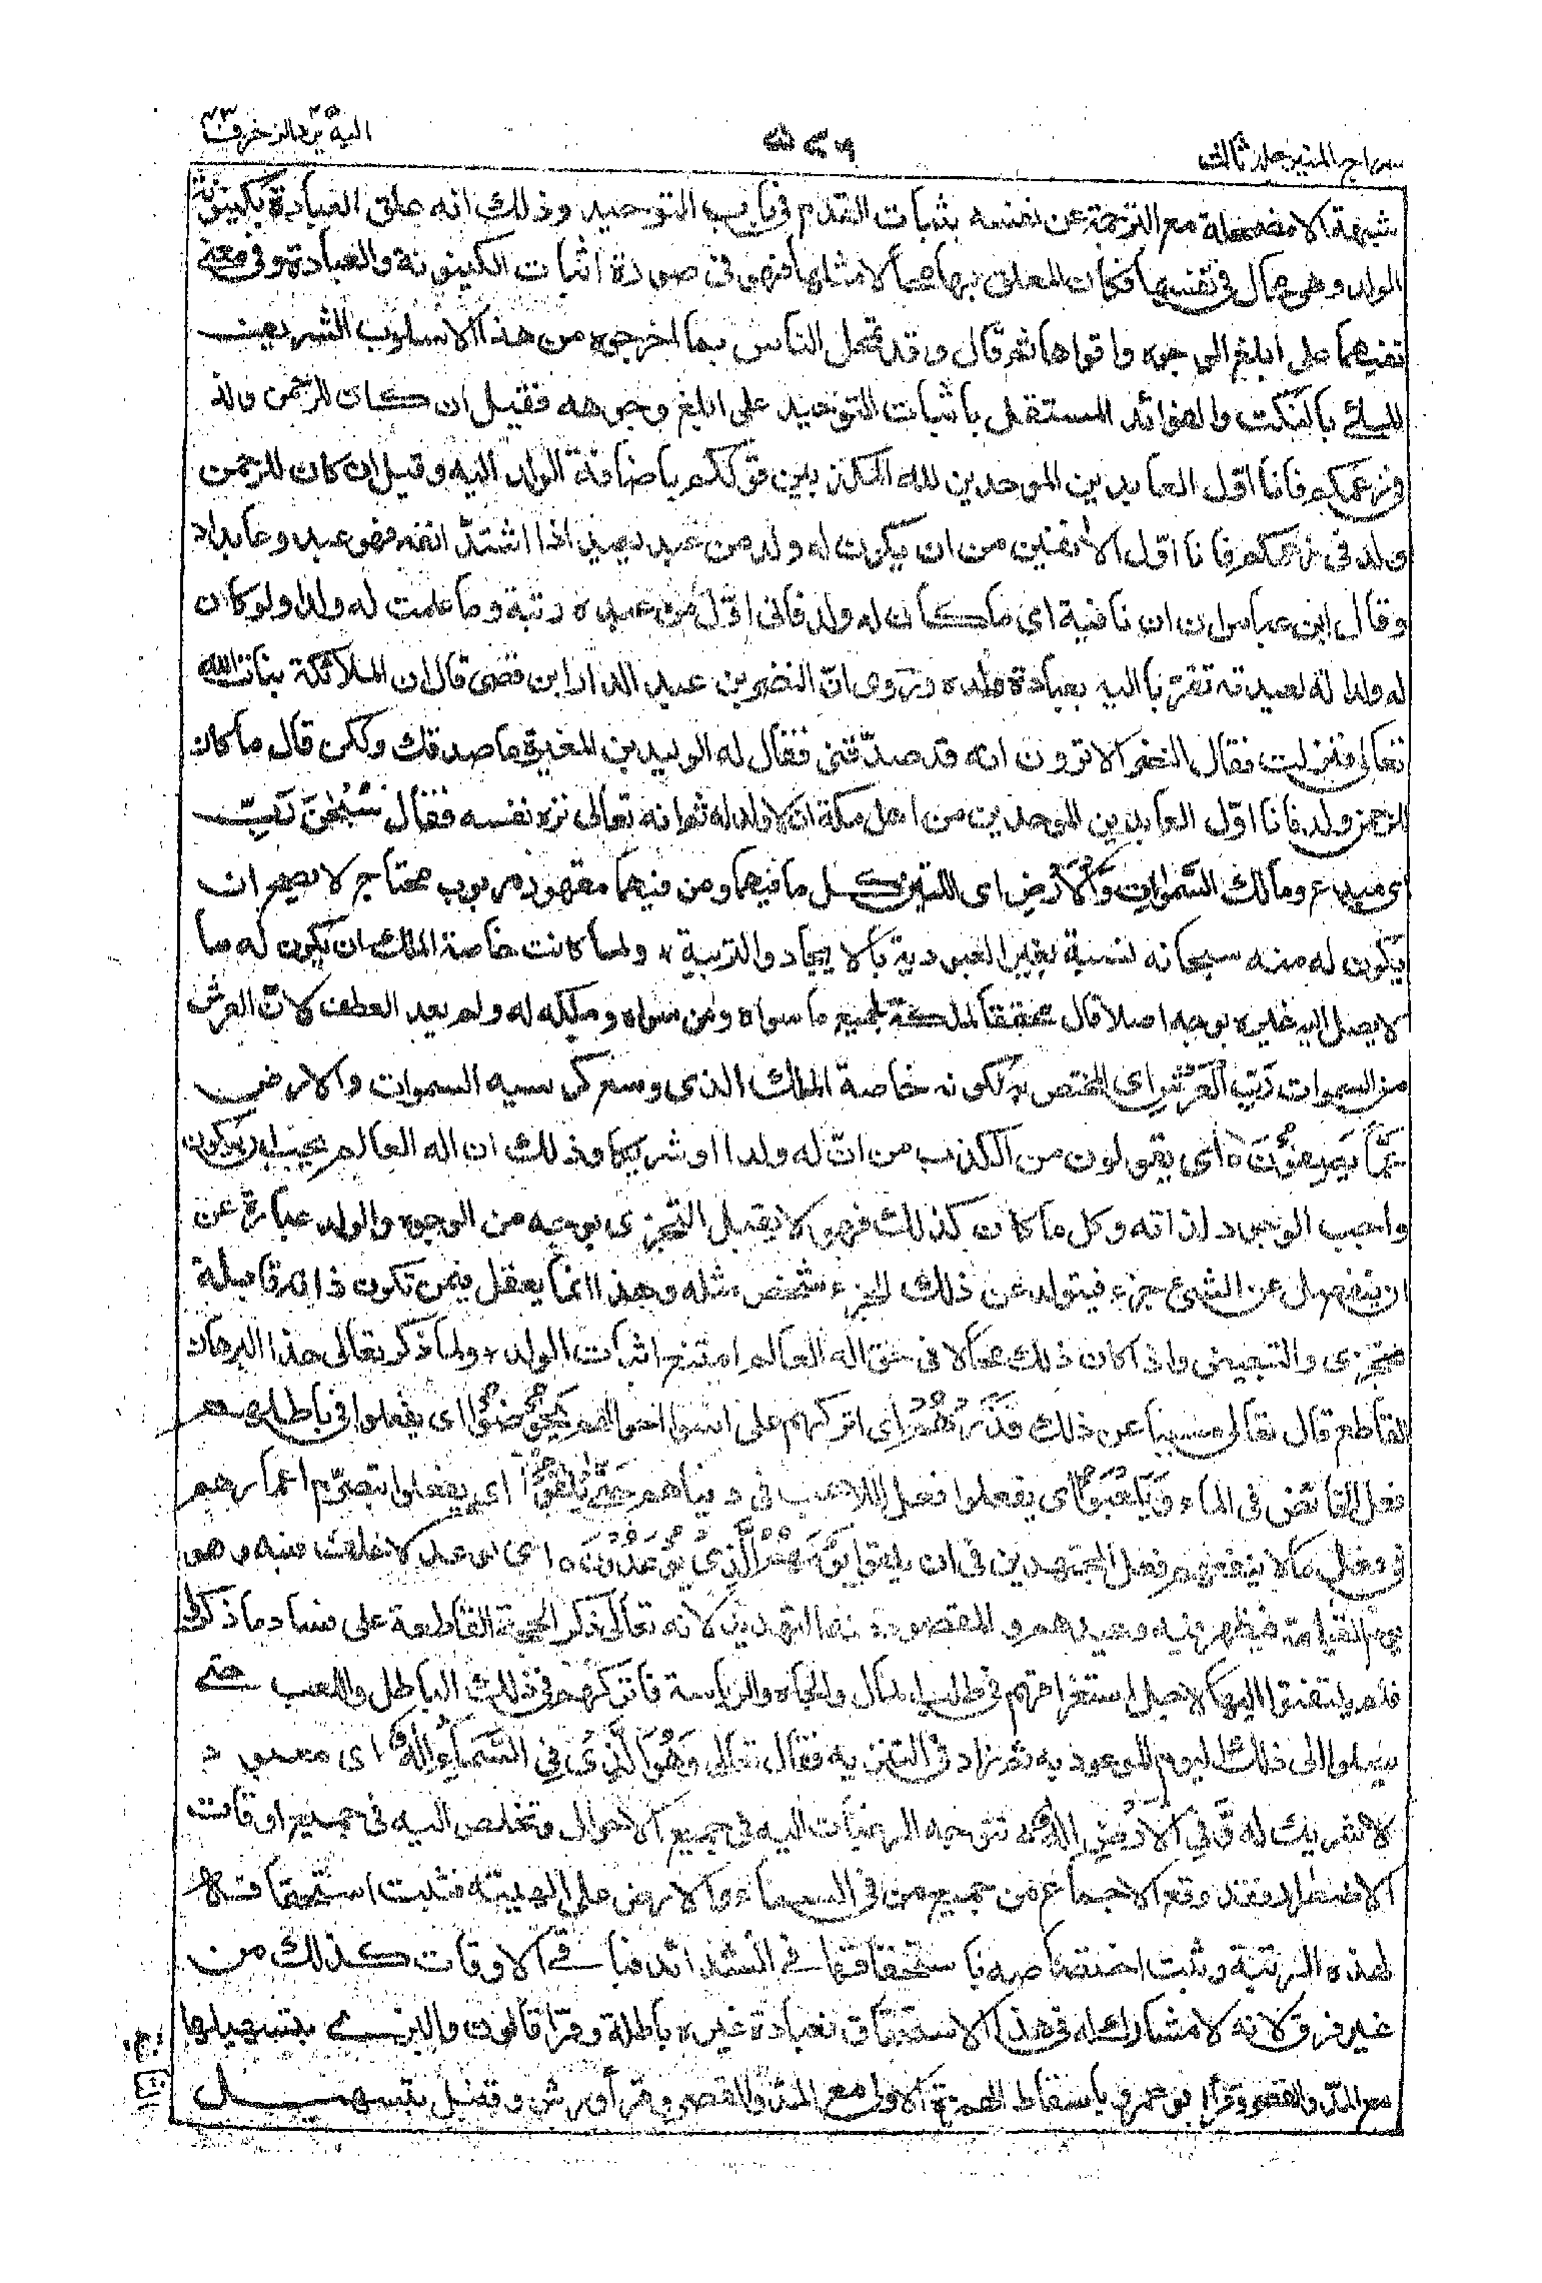 سراج المنير جلد ثالث
٥٤٦
اليه يرد الزخرف ٤٣
شبهة الا مضمحلة مع الترجمة عن نفسه بثبات القدم فى باب التوحيد وذلك انه علق العبادة بكينونة
الولد وهى محال فى نفسها فكان المعلق بها محالا مثلها فهو فى صورة اثبات الكينونة والعبادة وفى معنى
نفيهما على ابلغ الوجوه واقواها ثم قال وقد تمحل الناس بما اخرجوه من هذا الاسلوب الشريف
المليئ بالنكت والفوائد المستقل باثبات التوحيد على ابلغ وجوهه فقيل ان كان للرحمن ولد
فى زعمكم فانا اول العابدين الموحدين لله المكذبين قولكم باضافة الولد اليه وقيل ان كان للرحمن
ولد فى زعمكم فانا اول الانفين من ان يكون له ولد من عبد يعبد اذا اشتد انفه فهو عبد وعابد اه
وقال ابن عباس ان ان نافية اى ما كان له ولد فانى اول من عبده رتبة وما علمت له ولدا ولو كان
له ولدا له لعبدته تقربا اليه بعبادة ولده وروى ان النضر بن عبد الدار ابن قصى قال ان الملائكة بنات الله
تعالى فنزلت فقال النضر الا ترون انه قد صدقنى فقال له الوليد بن المغيرة ما صدقك ولكن قال ما كان
للرحمن ولد فانا اول العابدين الموحدين من اهل مكة ان لا ولد له ثم انه تعالى نزه نفسه فقال سُبْحٰنَ رَبِّ
اى مبدع ومالك السَّمٰوٰتِ وَالْاَرْضِ اى اللتين كل ما فيهما ومن فيهما مقهور مربوب محتاج لا يصح ان
يكون له منه سبحانه نسبة بغير العبودية بالايجاد والتربية ولما كانت خاصة الملك ان يكون له ما
لا يصل اليه غيره بوجه اصلا قال محققا لملكة لجميع ما سواه ومن سواه وملكه له ولم يعد العطف لان العرش
من السموات رَبِّ الْعَرْشِ اى المختص به لكونه خاصة الملك الذى وسع كرسيه السموات والارض
عَمَّا يَصِفُوْنَ ه اى يقولون من الكذب من ان له ولدا او شريكا وذلك ان اله العالم يجب ان يكون
واجب الوجود لذاته وكل ما كان كذلك فهو لا يقبل التجزى بوجه من الوجوه والولد عبارة عن
ان ينفصل عن الشئ جزء فيتولد عن ذلك الجزء شخص مثله وهذا انما يعقل فيمن تكون ذاته قابلة
متجزى والتبعيض واذا كان ذلك محالا فى حق اله العالم امتنع اثبات الولد ولما ذكر تعالى هذا البرهان
القاطع قال تعالى مسببا عن ذلك فَذَرْهُمْ اى اتركهم على اسوا احوالهم يَخُوْضُوْا اى يفعلوا فى باطلهم
فعل الخائض فى الماء وَيَلْعَبُوْا اى يفعلوا فعل اللاعب فى دنياهم حَتّٰى يُلٰقُوْا اى يفعلوا بتصرم اعمارهم
فى فعل ما لا ينفعهم فعل المجتهدين فى ان يلاقوا يَوْمَهُمُ الَّذِىْ يُوْعَدُوْنَ ه اى بوعد لا خلف فيه وهو
يوم القيامة فيظهر فيه وعيدهم والمقصود منه التهديد لانه تعالى ذكر الحجة القاطعة على فساد ما ذكروا
فلم يلتفتوا اليها لاجل استغراقهم فى طلب المال والجاه والرياسة فاتركهم فى ذلك الباطل واللعب حتى
يصلوا الى ذلك اليوم الموعود به ثم زاد فى التنزيه فقال تعالى وَهُوَ الَّذِىْ فِى السَّمَآءِ اِلٰهٌ اى معبود
لا شريك له وَّفِى الْاَرْضِ اِلٰهٌ تتوجه الرغبات اليه فى جميع الاحوال وتخلص اليه فى جميع اوقات
الاضطرار فقد وقع الاجماع من جميع من فى السماء والارض على الهيته فثبت استحقاقه
لهذه الرتبة وثبت اختصاصه باستحقاقها فى الشدائد فباقى الاوقات كذلك من
غير فرق لانه لا مشارك له فى هذا الاستحقاق فعبادة غيره باطلة وقرا قالون والبزى بتسهيلها
مع المد والقصر وقرا ابو عمرو باسقاط الهمزة الاولى مع المد والقصر وقرأ ورش وقنبل بتسهيل